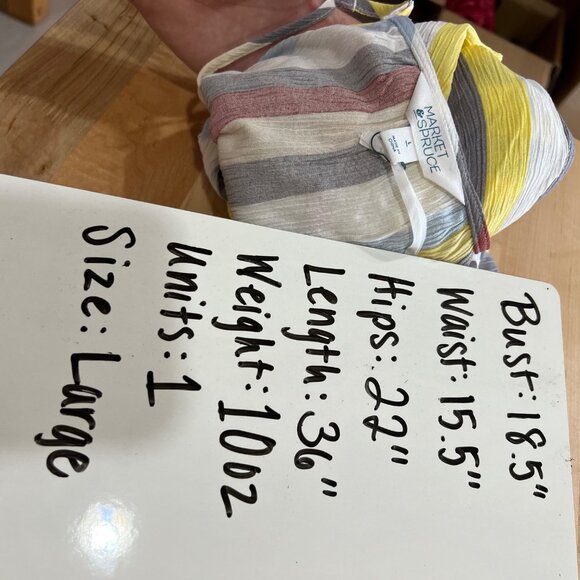 MARKET
& SPRUCE
L
Bust: 18.5"
Waist: 15.5"
Hips: 22"
Length: 36"
Weight: 10oz
Units: 1
Size: Large